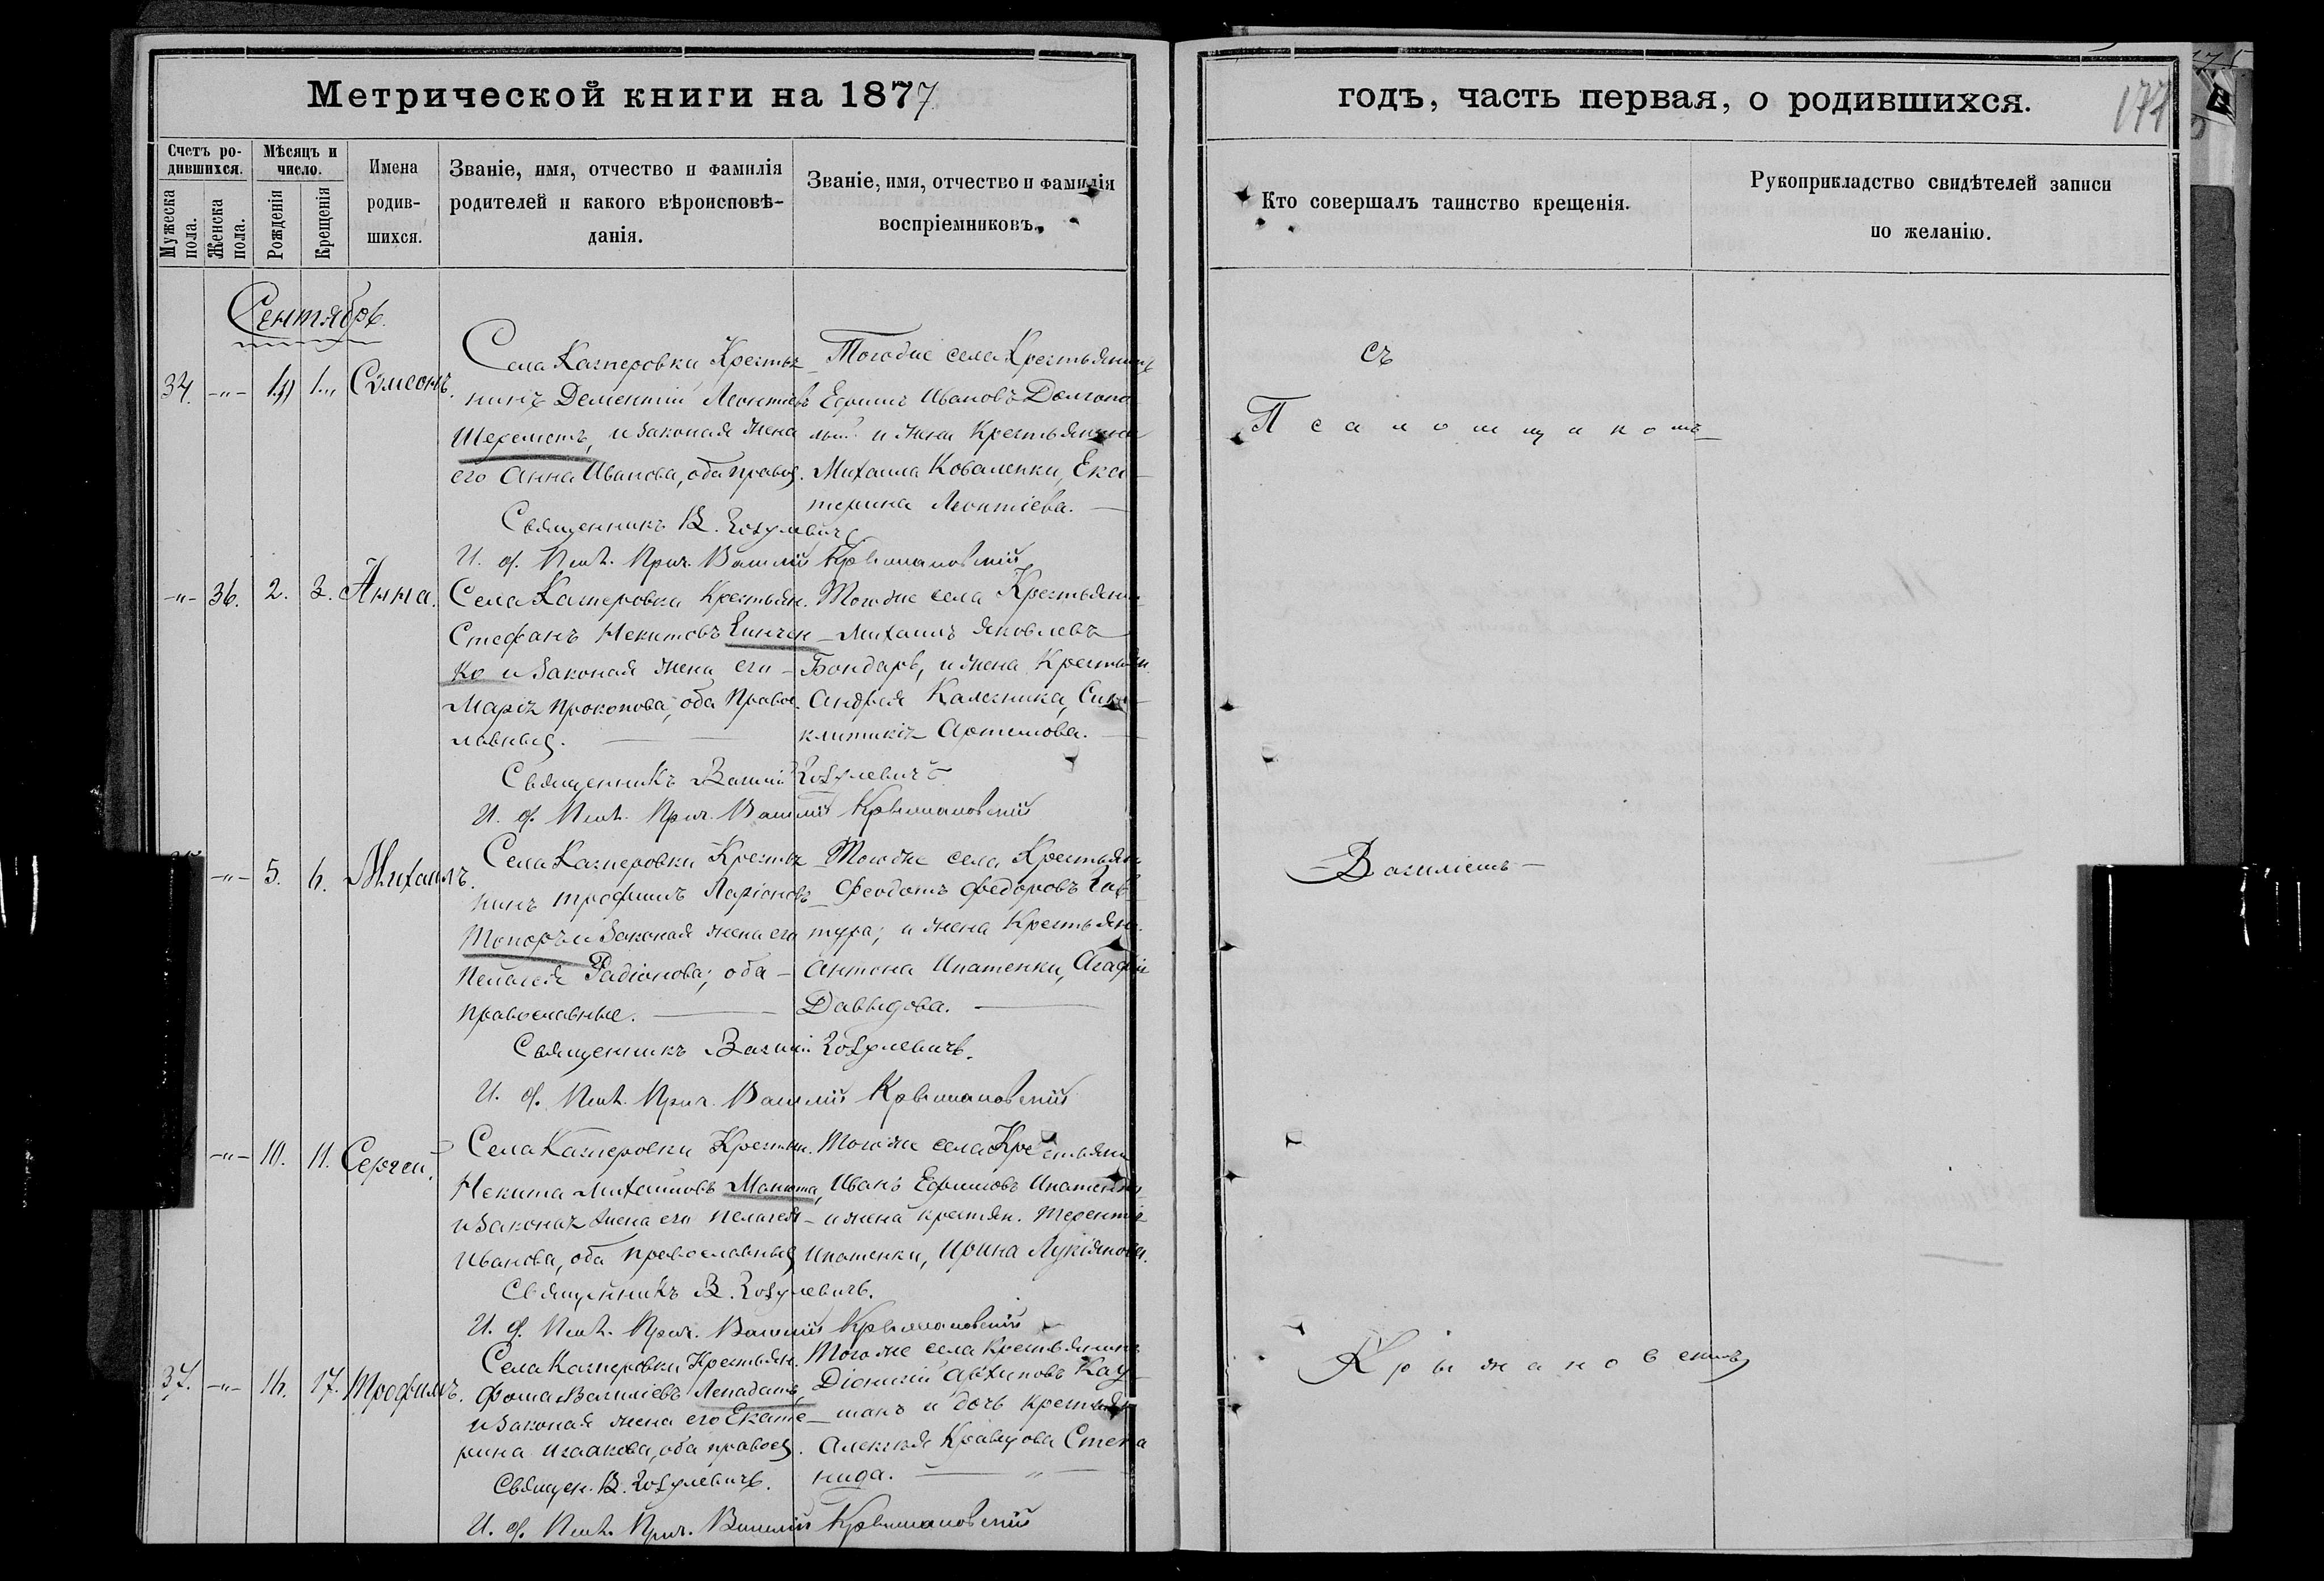 Метрической книги на 1877
годъ, часть первая, о родившихся.
177
Счетъ ро-
дившихся.
Мужеска
пола.
Женска
пола.
Мѣсяцъ и
число.
Рожденія
Крещенія
Имена
родив-
шихся.
Званіе, имя, отчество и фамилія
родителей и какого вѣроисповѣ-
данія.
Званіе, имя, отчество и фамилія
воспріемниковъ.
Кто совершалъ таинство крещенія.
Рукоприкладство свидѣтелей записи
по желанію.
Сентябрь.
34. -"- 1. Сѵмеонъ.
Села Касперовки Крестья
нинъ Дементій Леонтіевъ
Шереметъ, и законая жена
его Анна Иванова, оба правос.
Тогоже села Крестьянинъ
Ефимъ Ивановъ
и жена Крестьянина
Михаила Коваленки, Ека-
терина Леонтіева.
Священникъ В. Козулевичъ
И. д. Псал. Прич. Василій Крыжановскій
-"- 36. 2. 3. Анна.
Села Касперовки Крестьян.
Стефанъ Некитовъ Еинчен-
ко и законая жена его
Марія Прокопова, оба Право-
лавныя.
Тогоже села Крестьянин
Михаилъ Яковлевъ
Бондарь, и жена Крестьян.
Андрея Калесника, Син-
клитикія Артемова.
Священникъ Василій Козулевичъ
И. д. Псал. Прич. Василій Крыжановскій
-"- 5. 6. Михаилъ.
Села Касперовки Крестья
нинъ Трофимъ Ларіоновъ
Топоръ и законая жена его
Пелагея Радіонова; оба
православные.
Тогоже села Крестьян
Феодотъ Федоровъ
тура; и жена Крестьян.
Антона Ипатенки, Агафія
Давыдова.
Священникъ Василій Козулевичъ.
И. д. Псал. Прич. Василій Крыжановскій
-"- 10. 11. Сергей.
Села Касперовки Крестьян.
Некита Михайловъ Манюта,
и законая жена его Пелагея
Иванова, оба православныя
Тогоже села Крестьянин
Иванъ Ефимовъ Ипатенко
и жена крестьян. Терентія
Ипатенки, Ирина Лукіянова.
Священникъ В. Козулевичъ.
И. д. Псал. Прич. Василій Крыжановскій
37. -"- 16. 17. Трофимъ.
Села Касперовки Крестьян.
Фома Василіевъ Лепадатъ,
и законая жена его Екате-
рина Исаакова, оба правос.
Тогоже села Крестьянинъ
Діонисій Архиповъ Кау-
шанъ и дочь Крестьян
Алексея Кравцова Степа
нида.
Священ. В. Козулевичъ.
И. д. Псал. Прич. Василій Крыжановскій
съ
Псаломщикомъ
Василіемъ
Крыжановскимъ